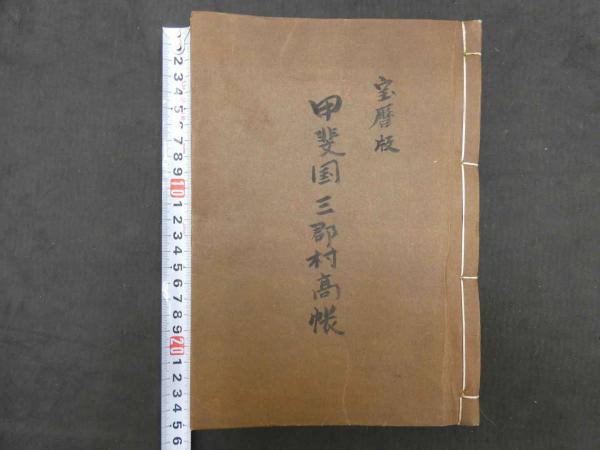 宝暦版
甲斐国三郡村高帳
2
3
4
5
6
7
8
9
10
1
2
3
4
5
6
7
8
9
20
1
2
3
4
5
6